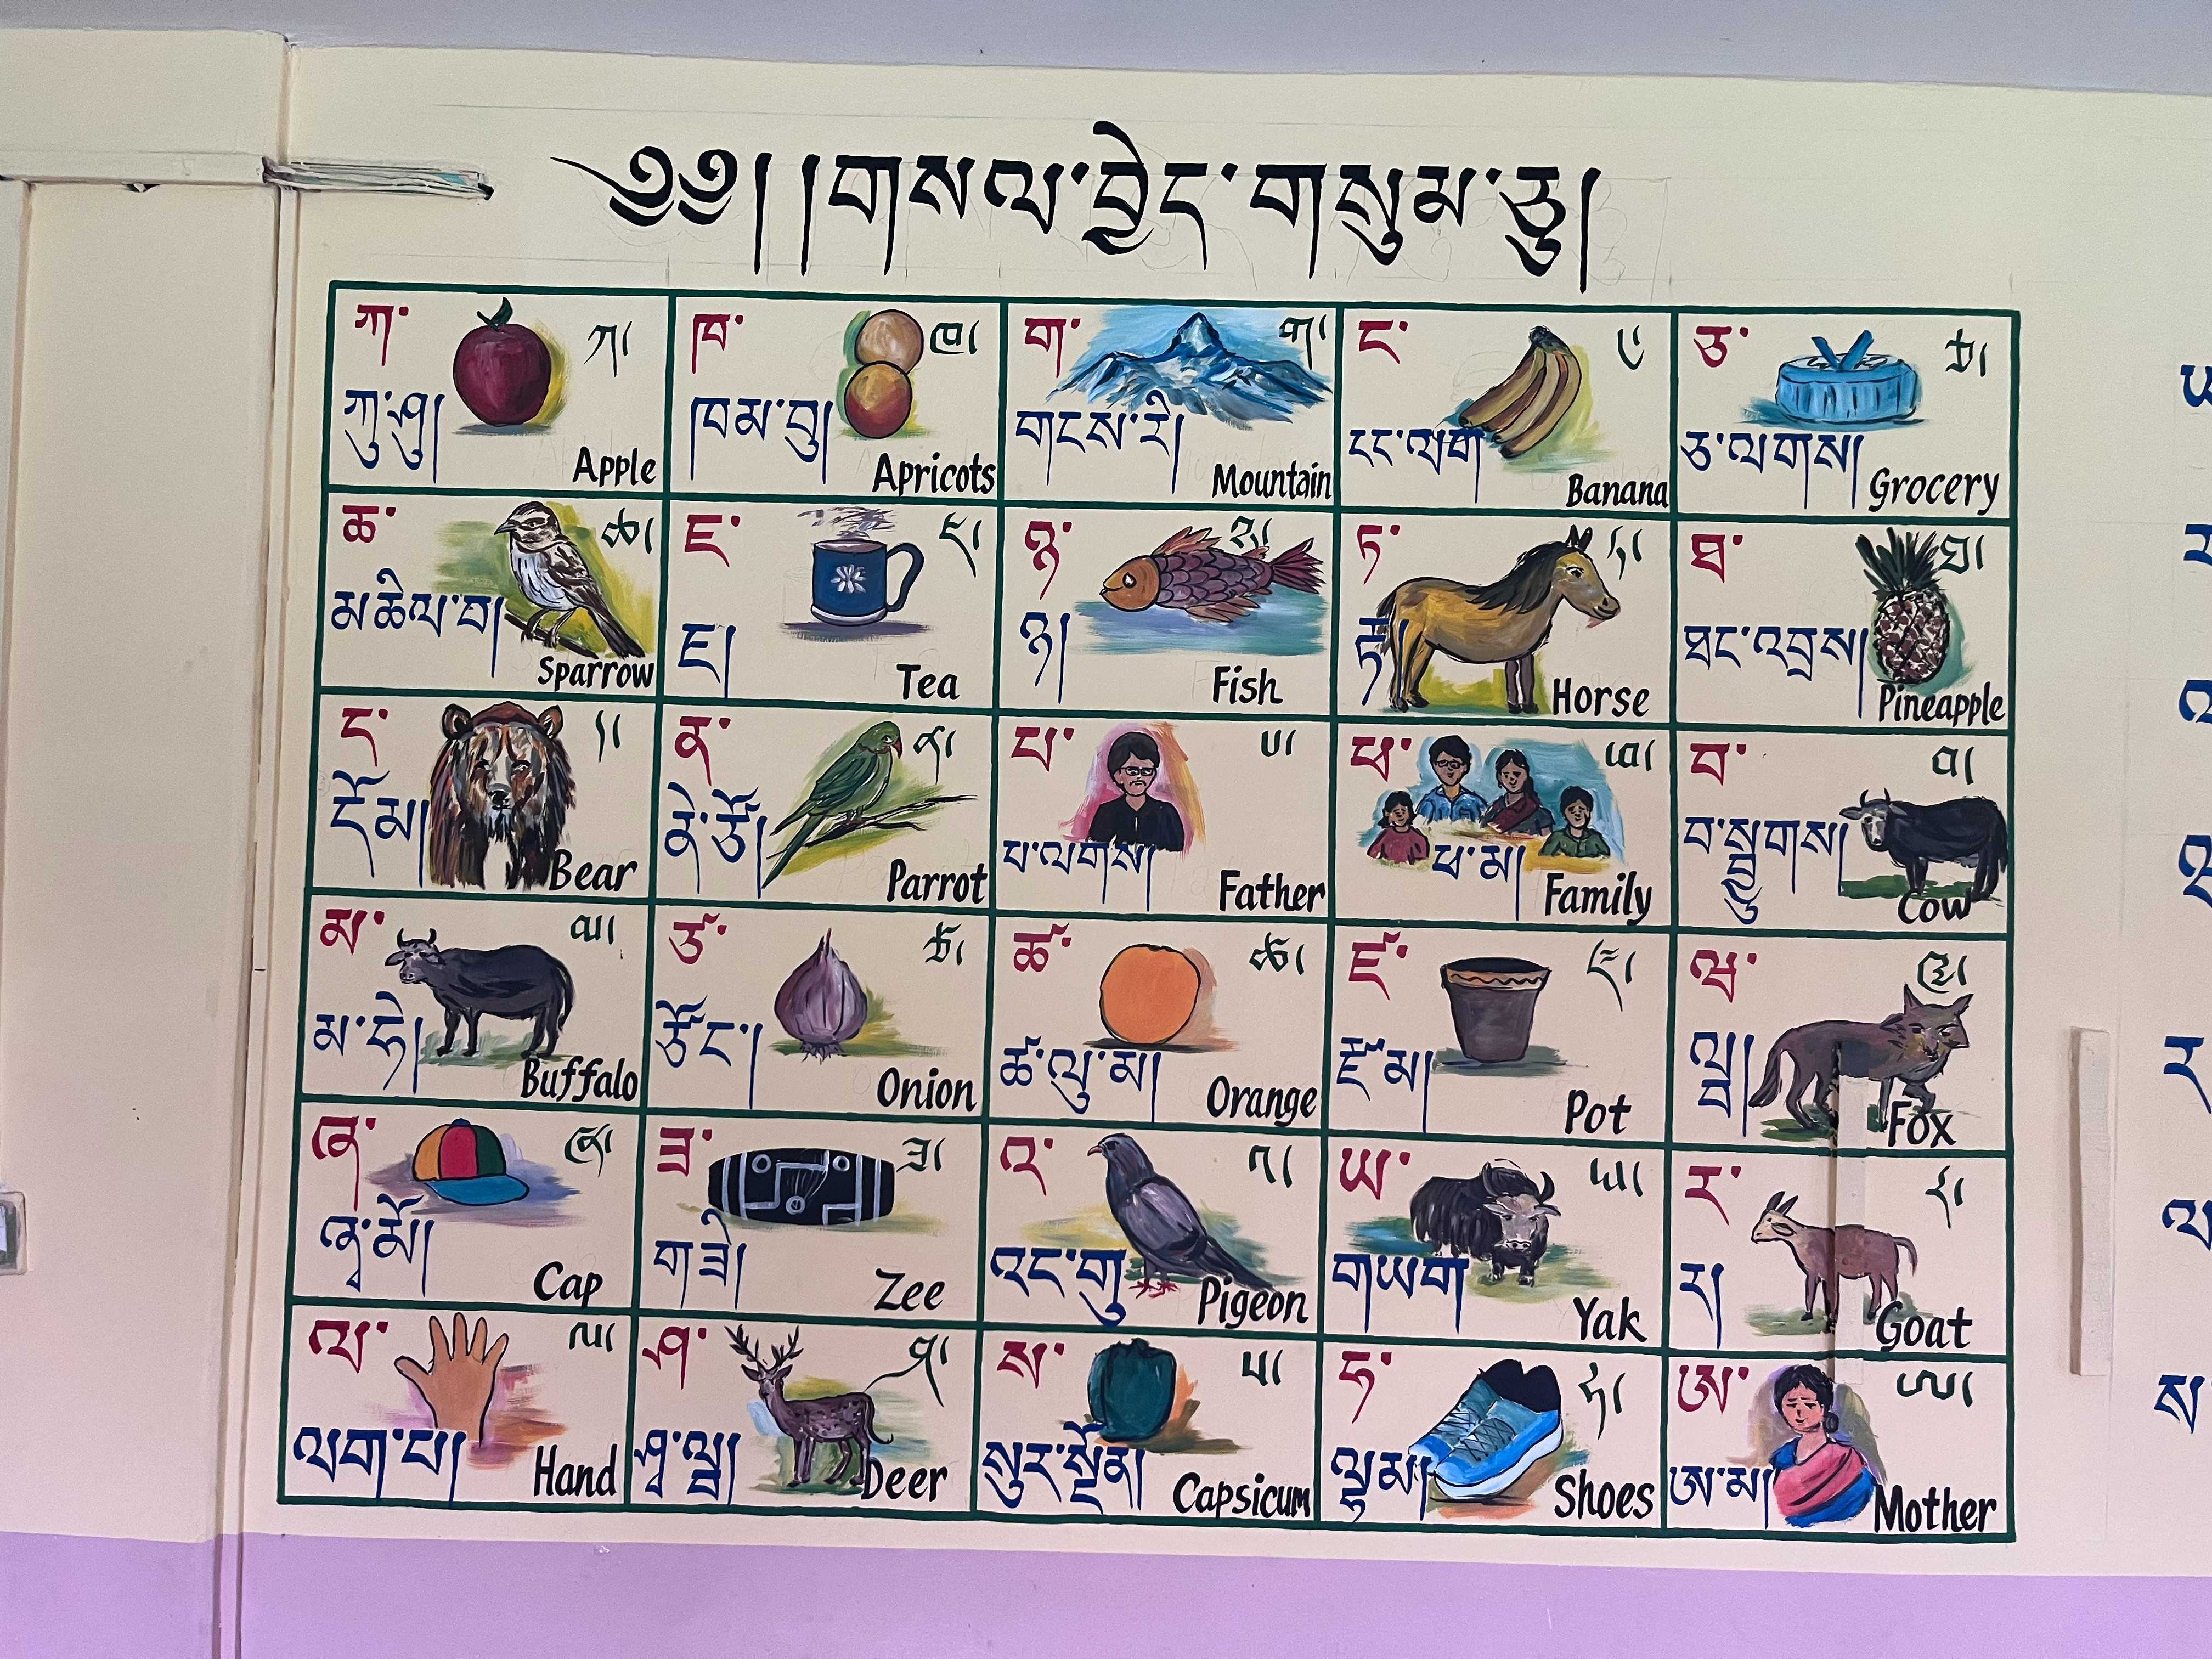 ༄༅། །གསལ་བྱེད་གསུམ་ཅུ།
ཀ་ ཀ།
ཀུ་ཤུ། Apple
ཁ་ ཁ།
ཁམ་བུ། Apricots
ག་ ག།
གངས་རི། Mountain
ང་ ང
ངང་ལག Banana
ཅ་ ཅ།
ཅ་ལགས། Grocery
ཆ་ ཆ།
མཆིལ་བ། Sparrow
ཇ་ ཇ།
ཇ། Tea
ཉ་ ཉ།
ཉ། Fish
ཏ་ ཏ།
རྟ། Horse
ཐ་ ཐ།
ཐང་འབྲས། Pineapple
ད་ ད།
དོམ། Bear
ན་ ན།
ནེ་ཙོ། Parrot
པ་ པ།
པ་ལགས། Father
ཕ་ ཕ།
ཕ་མ། Family
བ་ བ།
Cow
མ་ མ།
མ་ཧེ། Buffalo
ཙ་ ཙ།
ཙོང་། Onion
ཚ་ ཚ།
ཚ་ལུ་མ། Orange
ཛ་ ཛ།
ཛོམ། Pot
ཝ་ ཝ།
Fox
ཞ་ ཞ།
ཞྭ་མོ། Cap
ཟ་ ཟ།
གཟི། Zee
འ་ འ།
འང་གུ Pigeon
ཡ་ ཡ།
གཡག Yak
ར་ ར།
ར། Goat
ལ་ ལ།
ལག་པ། Hand
ཤ་ ཤ།
Deer
ས་ ས།
སུར་སྔོན། Capsicum
ཧ་ ཧ།
ལྷམ། Shoes
ཨ་ ཨ།
ཨ་མ། Mother